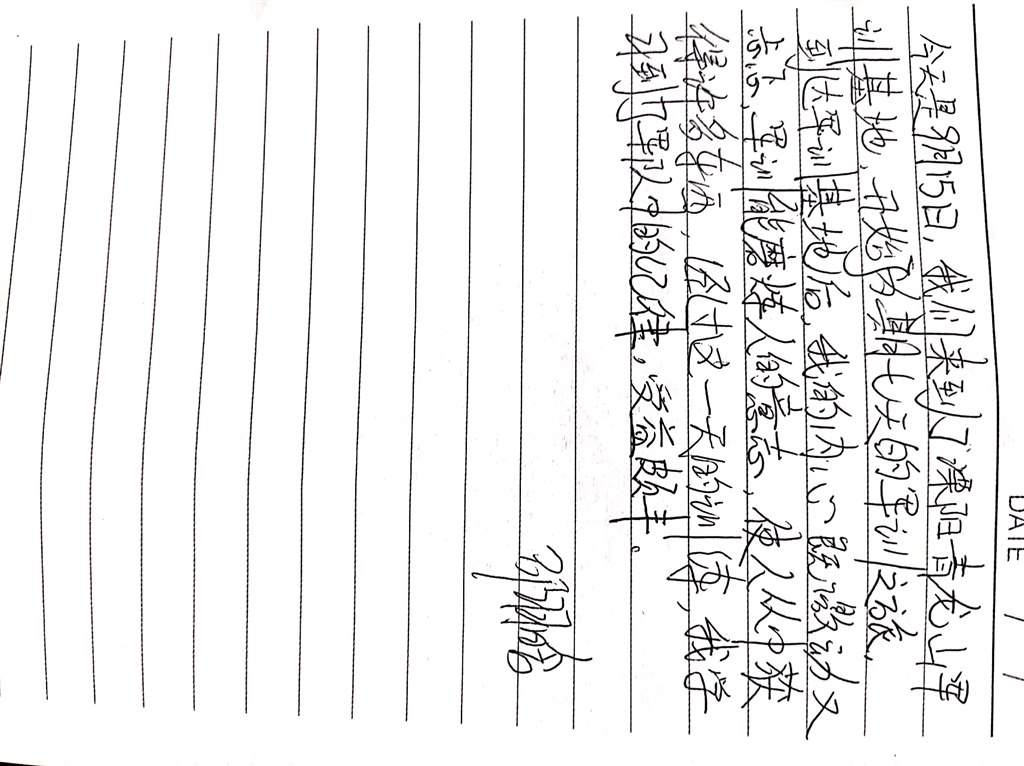 DATE / /
今天是9月15日,我们来到了溧阳青龙山军
训基地,开始为期七天的军训之旅。
到达军训基地后,我的内心既激动又
忐忑,军训能磨炼人的意志,使人从中获
得许多东西,经过这一天的训练,我学
习到了军人中的纪律,受益颇丰。